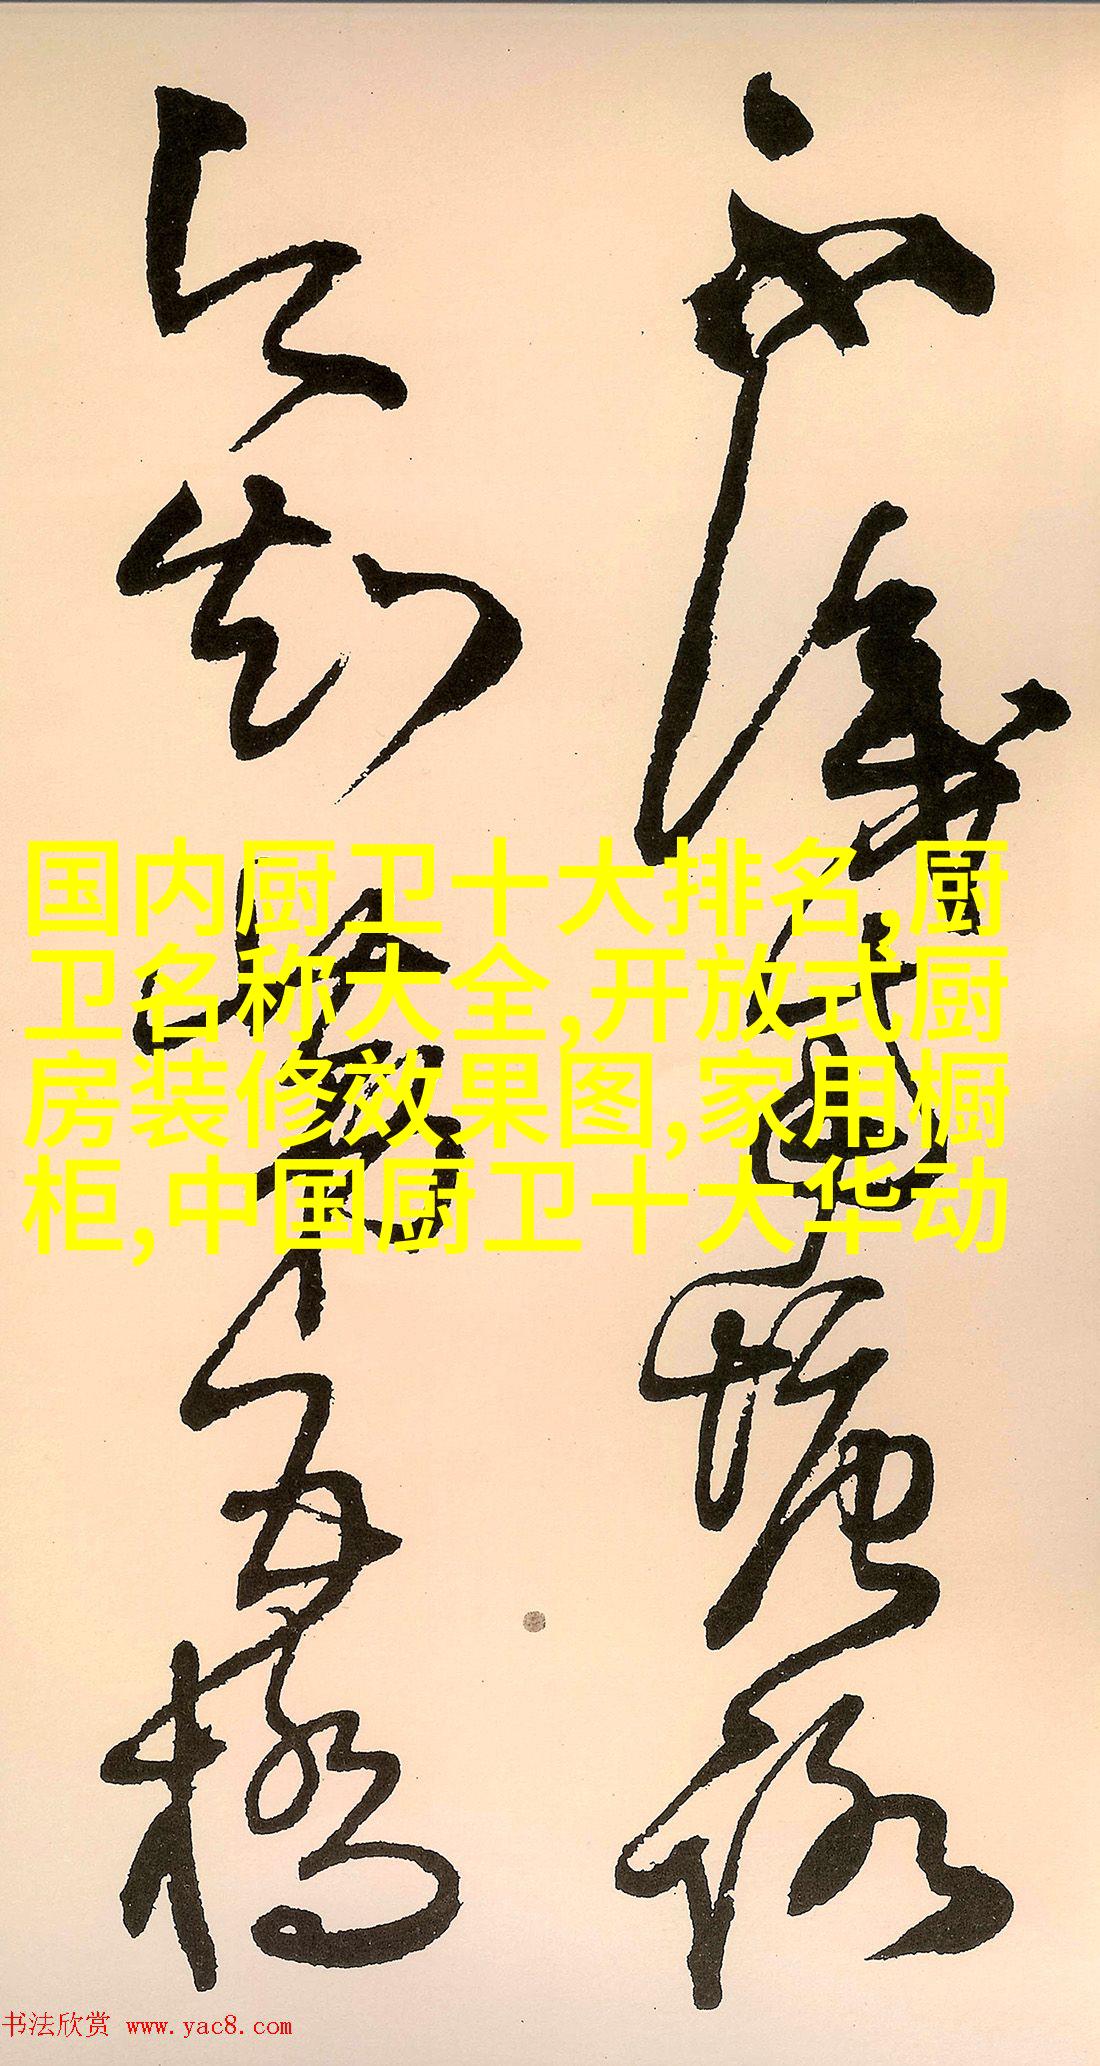 不識南塘路
今知第五橋
国内厨卫十大排名,厨
卫名称大全,开放式厨
房装修效果图,家用橱
柜,中国厨卫十大华动
书法欣赏 www.yac8.com